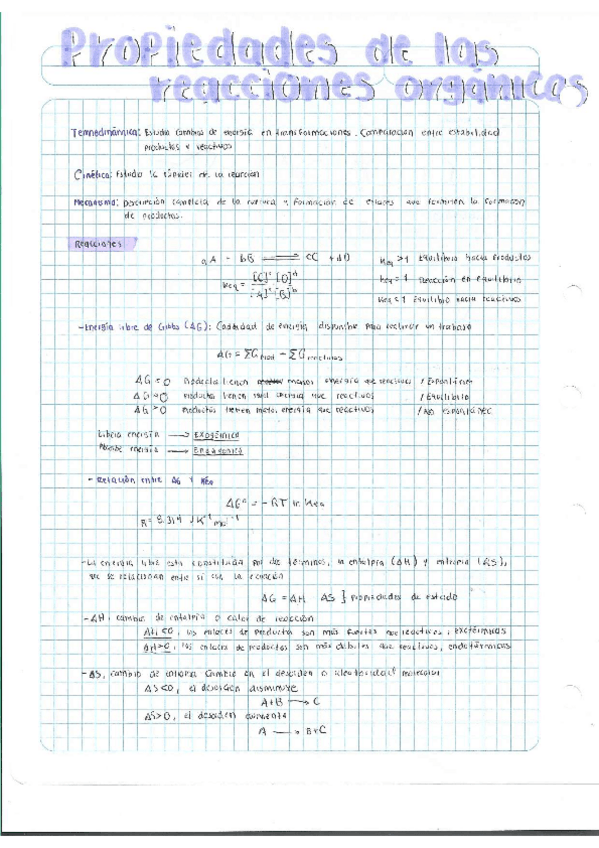 Propiedades de las
reacciones orgánicas
Termodinámica: Estudia cambios de energía en transformaciones. Comparación entre estabilidad
productos y reactivos
Cinética: Estudio la rapidez de la reacción
Mecanismo: Descripción completa de la ruptura y formación de enlaces que permiten la formación
de productos.
Reacciones
aA + bB ⇌ cC + dD
Keq > 1 Equilibrio hacia productos
Keq = [C]ᶜ[D]ᵈ / [A]ᵃ[B]ᵇ
Keq = 1 Reacción en equilibrio
Keq < 1 Equilibrio hacia reactivos
- Energía libre de Gibbs (ΔG): Cantidad de energía disponible para realizar un trabajo
ΔG = ΣG prod - ΣG reactivos
ΔG < 0 Productos tienen menos energía que reactivos / Espontáneo
ΔG = 0 productos tienen igual energía que reactivos / Equilibrio
ΔG > 0 Productos tienen mayor energía que reactivos / No espontáneo
Libera energía → Exogénico
Absorbe energía →
- Relación entre ΔG y Keq
ΔG° = - RT ln Keq
R = 8.314 JK⁻¹ mol⁻¹
- La energía libre está constituida por dos términos, la entalpía (ΔH) y entropía (ΔS),
que se relacionan entre sí con la ecuación
ΔG = ΔH ΔS } Propiedades de estado
- ΔH, cambio de entalpía o calor de reacción
ΔH < 0, los enlaces de producto son más fuertes que reactivos, exotérmicas
ΔH > 0, los enlaces de productos son más débiles que reactivos, endotérmicas
- ΔS, cambio de entropía cambio en el desorden o aleatoriedad molecular
ΔS < 0, el desorden disminuye
A + B → C
ΔS > 0, el desorden aumenta
A → B + C